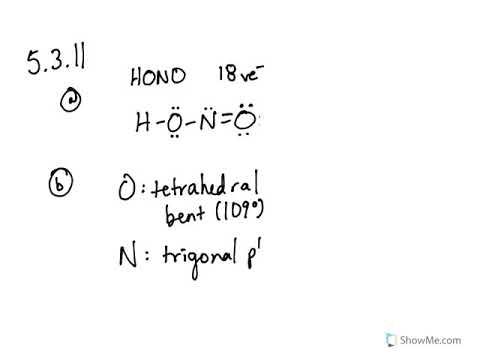 5.3.11
HONO 18 ve⁻
(a)
H-Ö-N̈=Ö
(b) O: tetrahedral
bent (109°)
N: trigonal p
ShowMe.com